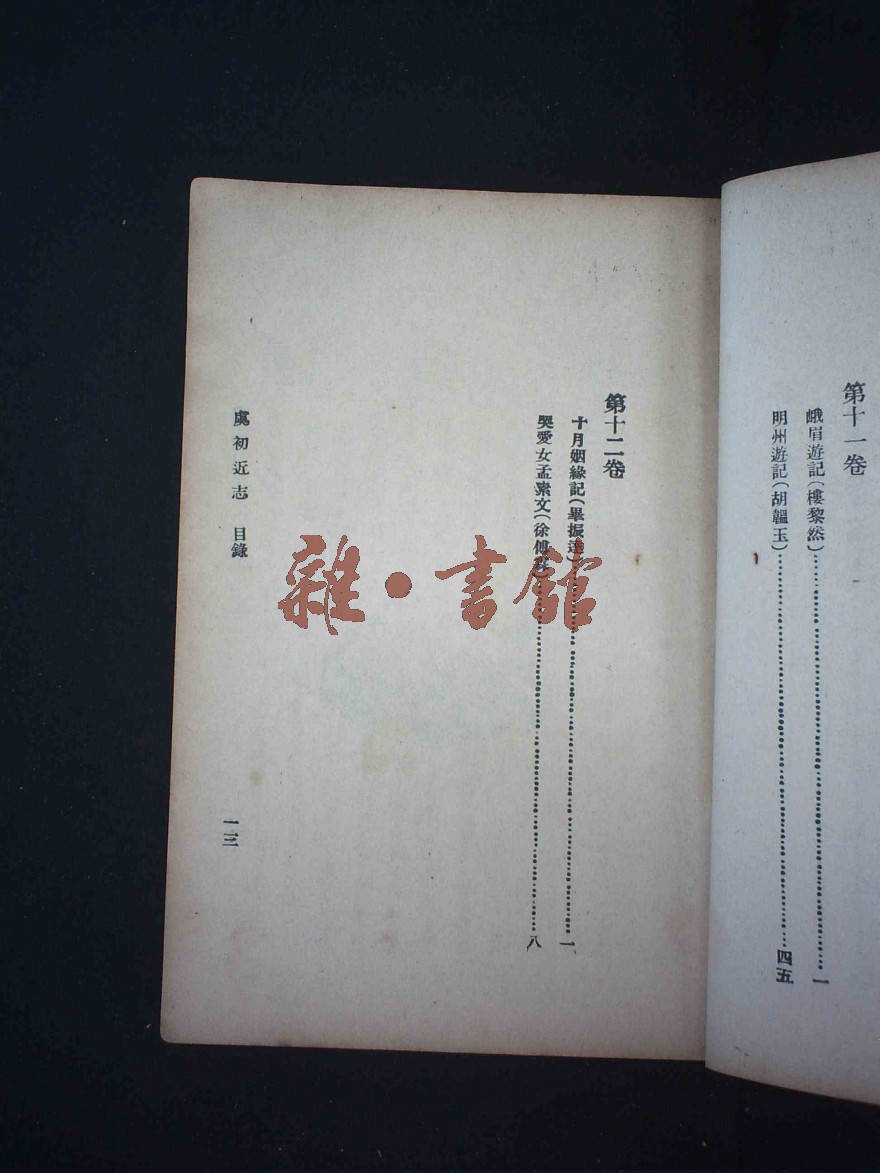 第十一卷
峨眉遊記(樓黎然)……一
明州遊記(胡韞玉)……四五
第十二卷
十月姻緣記(畢振達)……一
哭愛女孟素文(徐傅霖)……八
虞初近志 目錄
一三
雜·書館